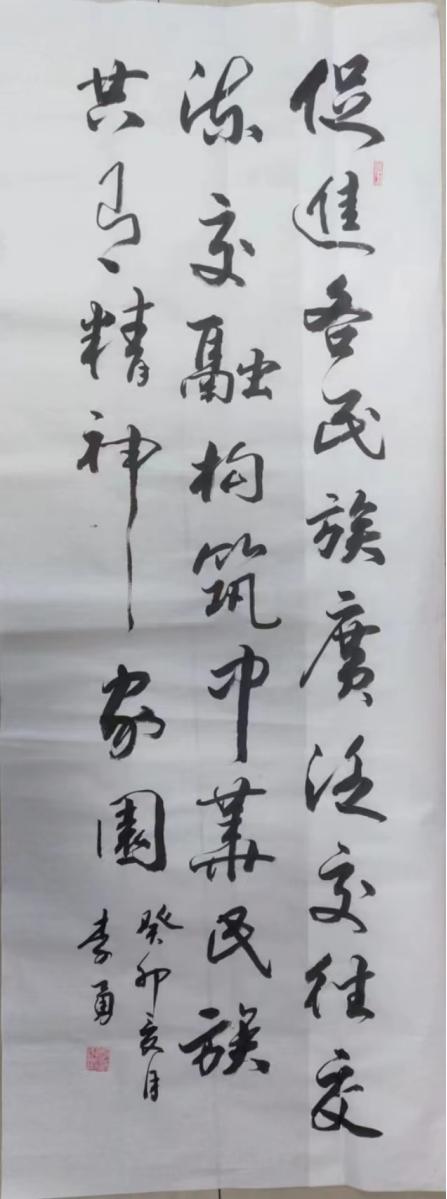 促進各民族廣泛交往交
流交融构筑中華民族
共有精神家園
癸卯亥月
李勇